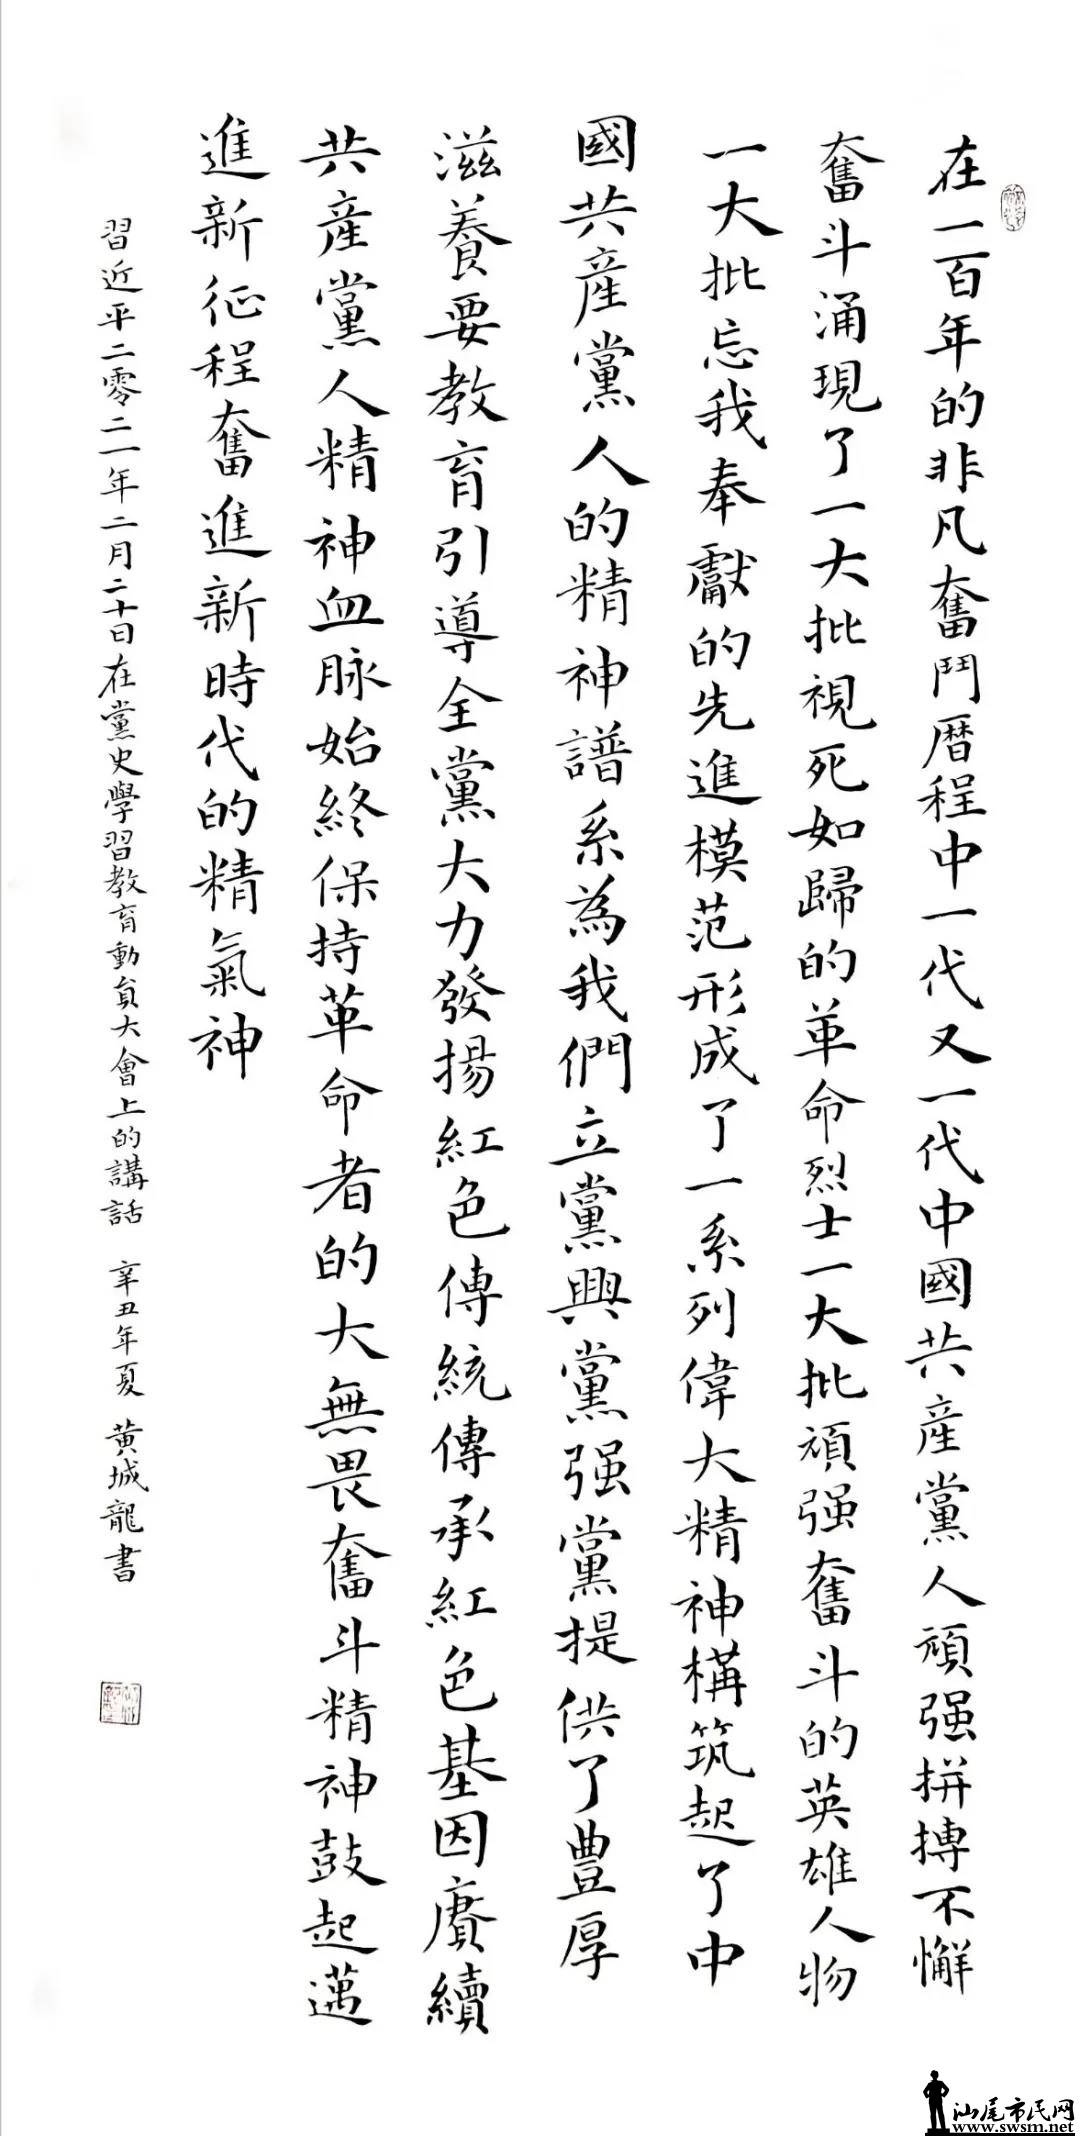 在一百年的非凡奮鬥曆程中一代又一代中國共產黨人頑强拼搏不懈
奮斗涌現了一大批視死如歸的革命烈士一大批頑强奮斗的英雄人物
一大批忘我奉獻的先進模范形成了一系列偉大精神構筑起了中
國共產黨人的精神譜系為我們立黨興黨强黨提供了豊厚
滋養要教育引導全黨大力發揚紅色傳統傳承紅色基因賡續
共產黨人精神血脉始終保持革命者的大無畏奮斗精神鼓起邁
進新征程奮進新時代的精氣神
習近平二零二一年二月二十日在黨史學習教育動員大會上的講話 辛丑年夏 黃城龍書
汕尾市民网
www.swsm.net